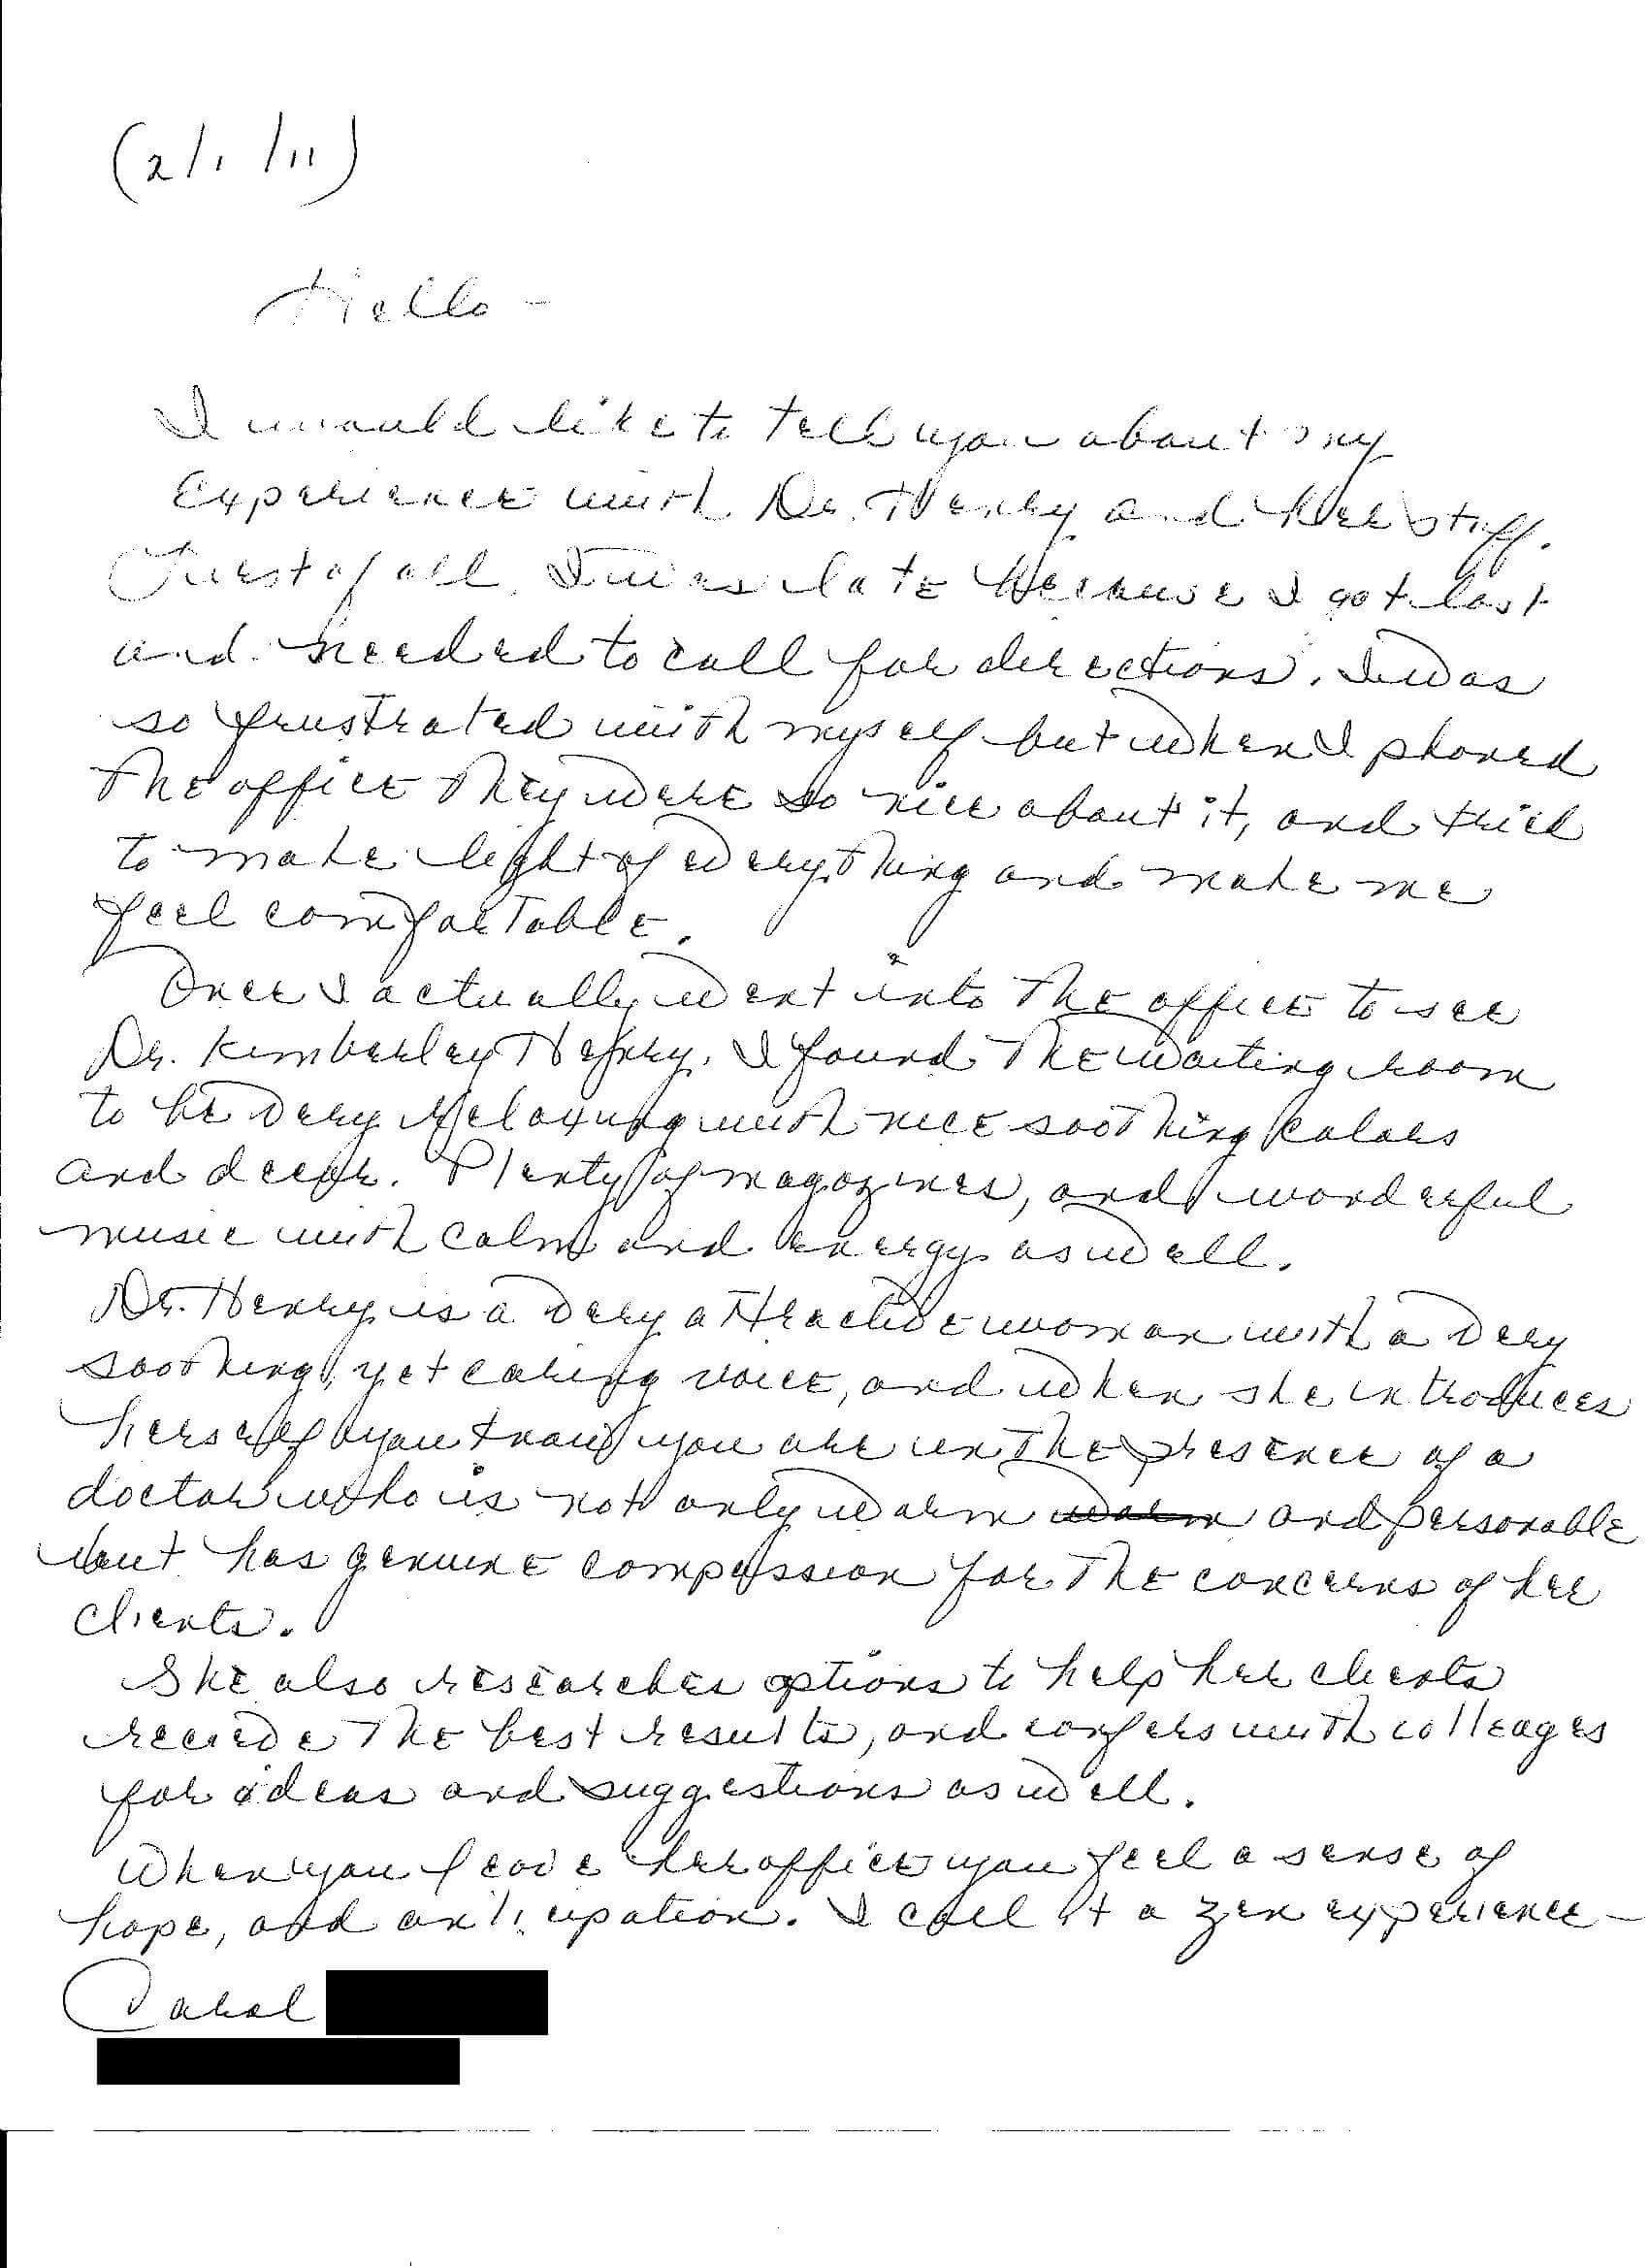 (2/1/11)
Hello -
I would like to tell you about my
experience with Dr. Henry and her staff.
First of all I was late because I got lost
and needed to call for directions. I was
so frustrated with myself but when I phoned
the office they were so nice about it, and tried
to make light of everything and make me
feel comfortable.
Once I actually went into the office to see
Dr. Kimberley Henry. I found the waiting room
to be very relaxing with nice soothing colors
and decor. Plenty of magazines, and wonderful
music with calm and energy as well.
Dr. Henry is a very attractive woman with a very
soothing, yet caring voice, and when she introduces
herself you know you are in the presence of a
doctor who is not only warm warm and personable
but has genuine compassion for the concerns of her
clients.
She also researches options to help her clients
receive the best results, and confers with colleages
for ideas and suggestions as well.
When you leave her office you feel a sense of
hope, and anticipation. I call it a zen experience -
Carol